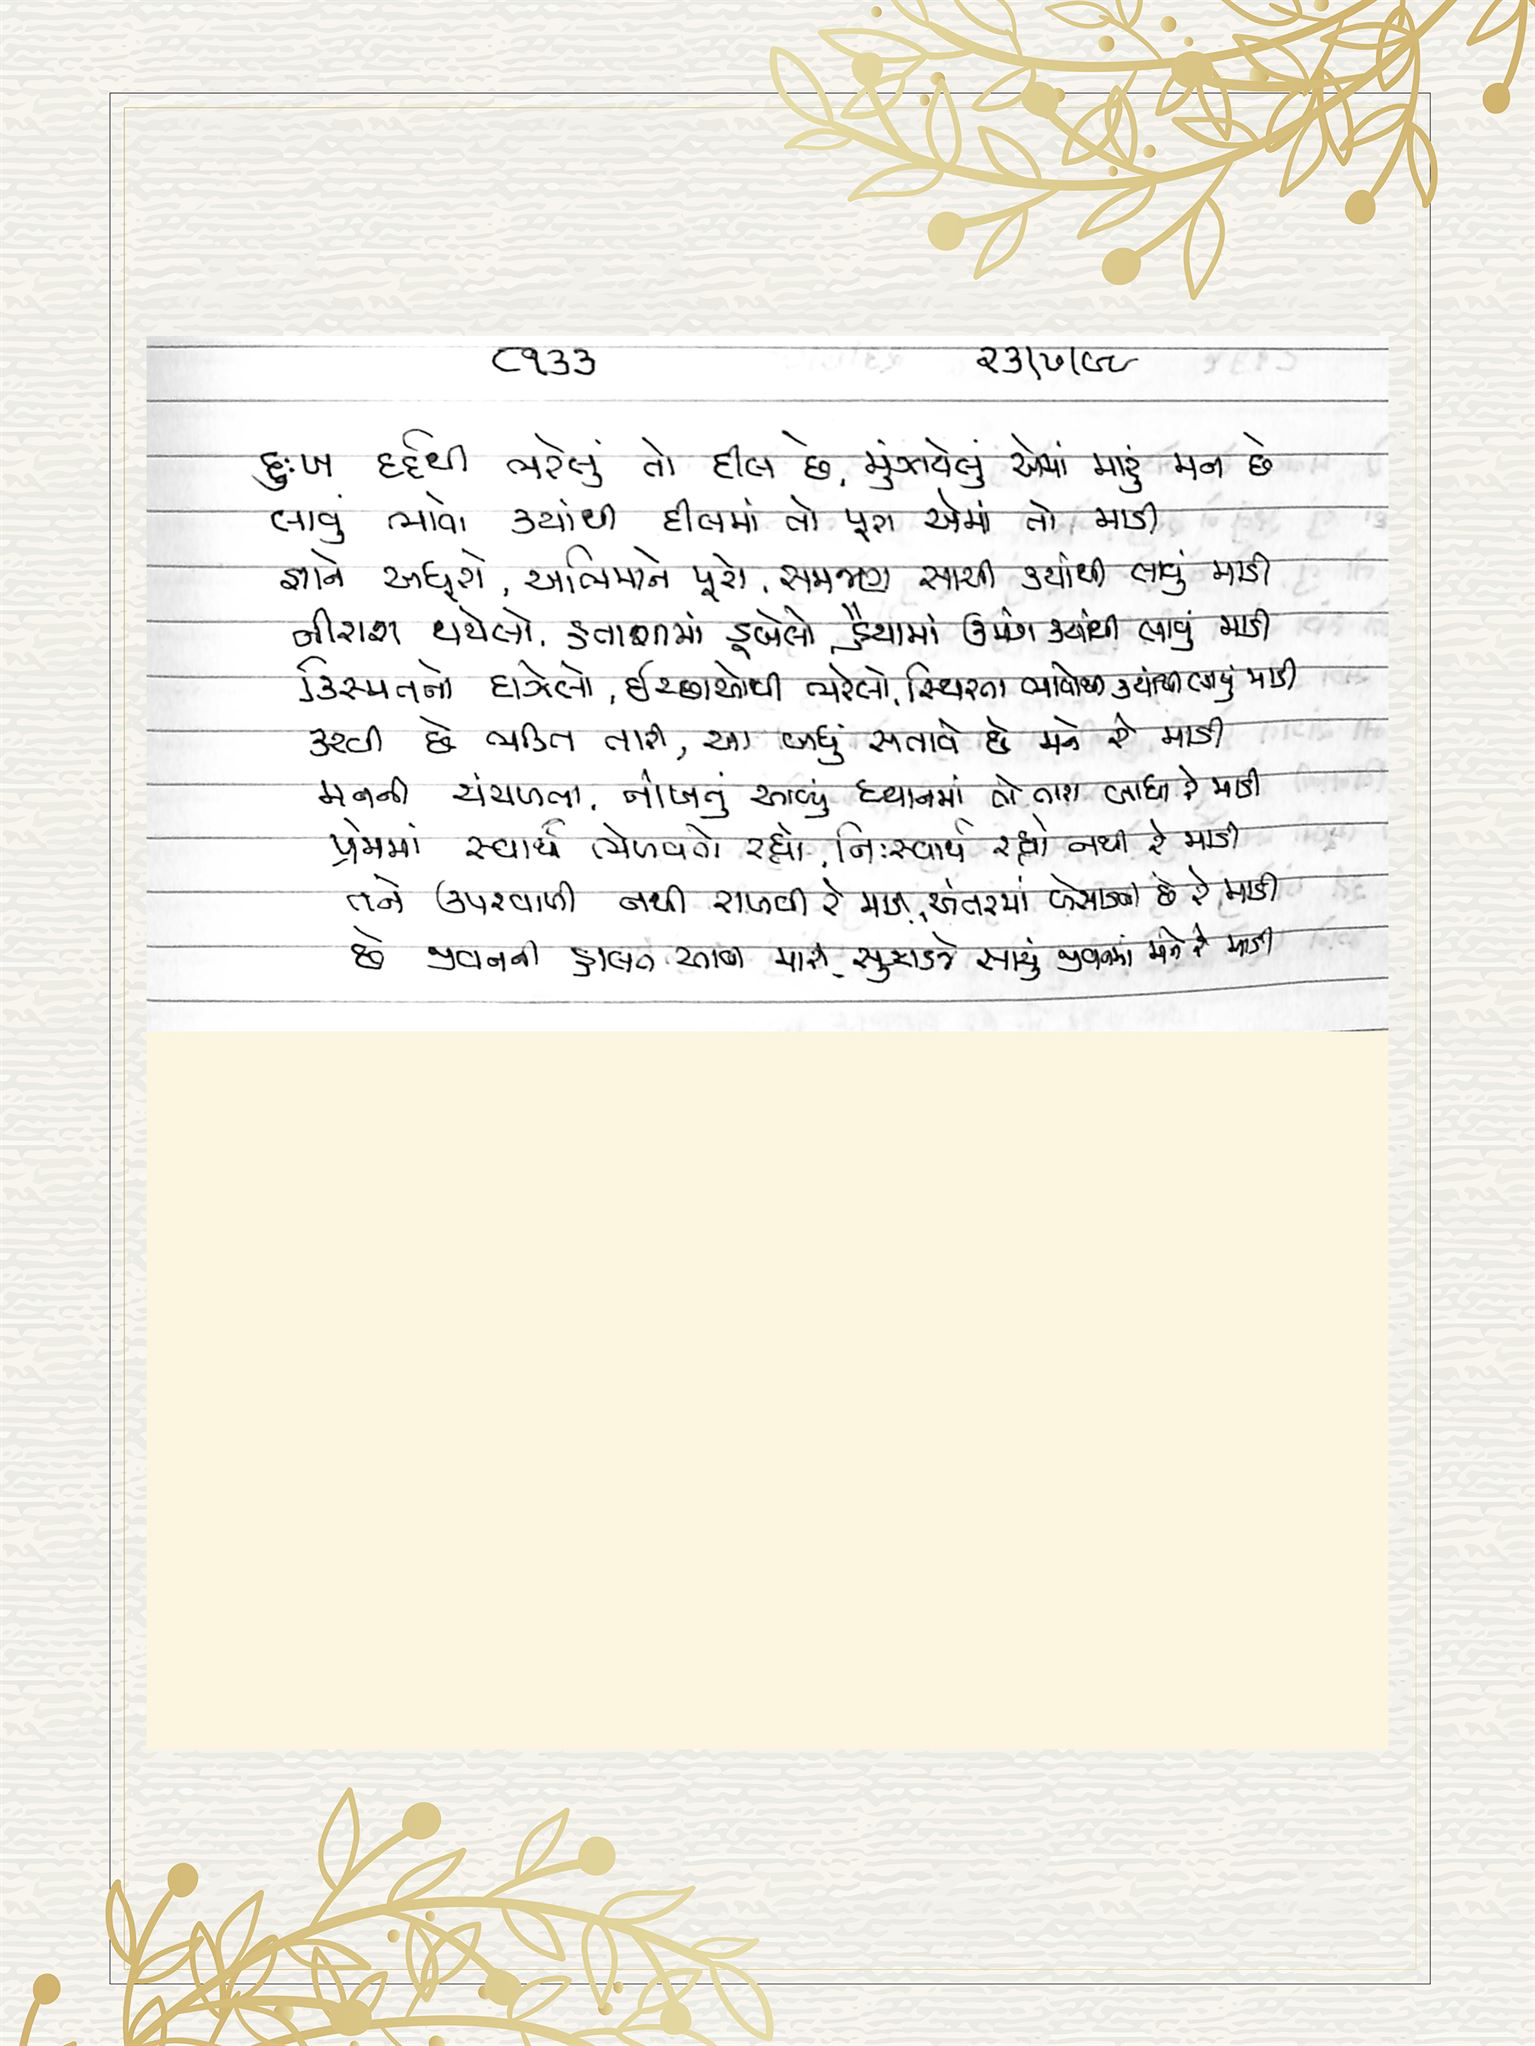 ૮૧૩૩ ૨૩/૭/૯૯
દુઃખ દર્દથી ભરેલું તો દીલ છે, મુંઝાયેલું એમાં મારું મન છે
લાવું ભાવો ક્યાંથી દીલમાં તો પૂરા એમાં તો માડી
જ્ઞાને અધૂરો, અભિમાને પૂરો, સમજણ સાચી ક્યાંથી લાવું માડી
નીરાશ થયેલો, હતાશામાં ડૂબેલો, હૈયામાં ઉમંગ ક્યાંથી લાવું માડી
કિસ્મતનો દાઝેલો, ઈચ્છાઓથી ભરેલો, સ્થિરતા ભાવોથી ક્યાંથી લાવું માડી
કરવી છે ભક્તિ તારી, આ બધું સતાવે છે મને રે માડી
મનની ચંચળતા, નાંખતું આવ્યું ધ્યાનમાં તો તારા બાધા રે માડી
પ્રેમમાં સ્વાર્થ ભેળવતો રહ્યો, નિઃસ્વાર્થ રહ્યો નથી રે માડી
તને ઉપરવાળી નથી રાખવી રે માડી, અંતરમાં બેસાડવી છે રે માડી
છે જીવનની હાલત આવી મારી, સુઝાડજે સાચું જીવનમાં મને રે માડી